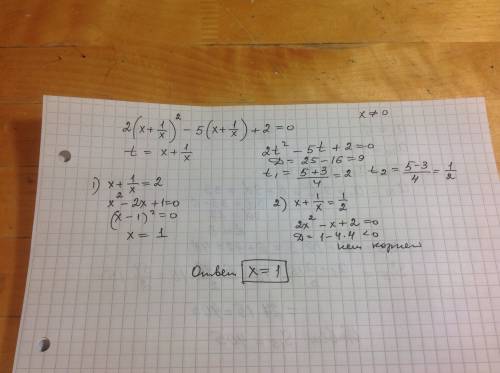 x ≠ 0
2(x + 1/x)² − 5(x + 1/x) + 2 = 0
t = x + 1/x
2t² − 5t + 2 = 0
D = 25 − 16 = 9
t₁ = (5+3)/4 = 2 t₂ = (5−3)/4 = 1/2
1) x + 1/x = 2
x² − 2x + 1 = 0
(x − 1)² = 0
x = 1
2) x + 1/x = 1/2
2x² − x + 2 = 0
D = 1 − 4·4 < 0
нет корней
Ответ x = 1